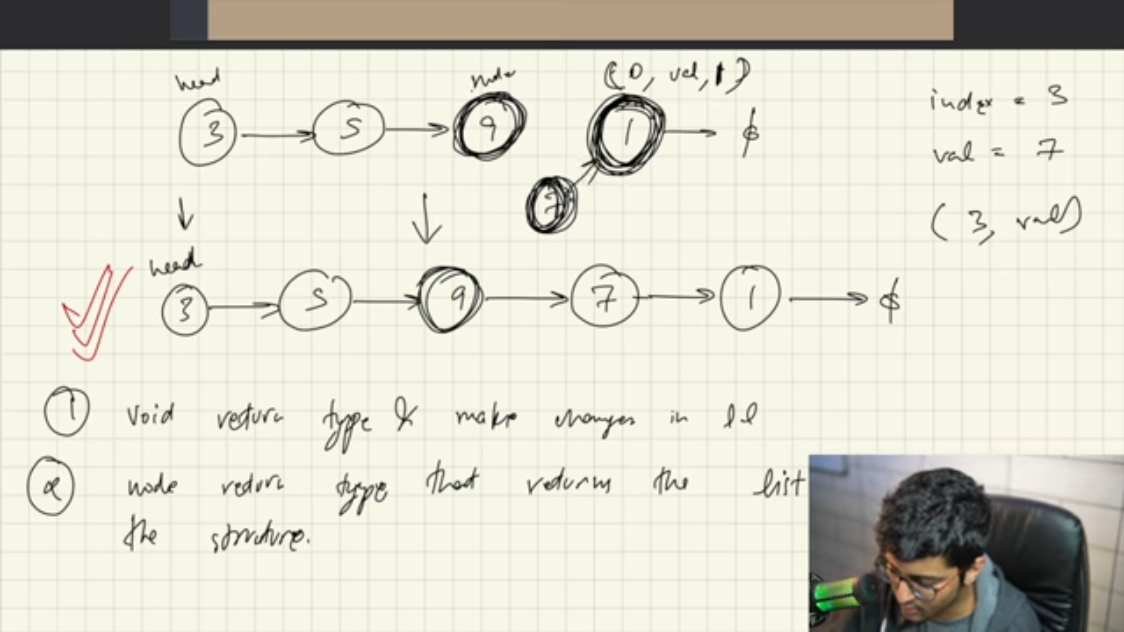 head node (0, val, 1)
3 5 9 1 $
index = 3
val = 7
7
(3, val)
head
3 5 9 7 1 $
1 void return type & make changes in ll
2 node return type that returns the list
the structure.